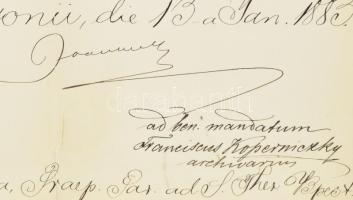 onii, die 13-a Jan. 1883.
Joannes
ad ben. mandatum
Franciscus Koperniczky
archivarius
a, Praep. Par. ad S. Ther. V.